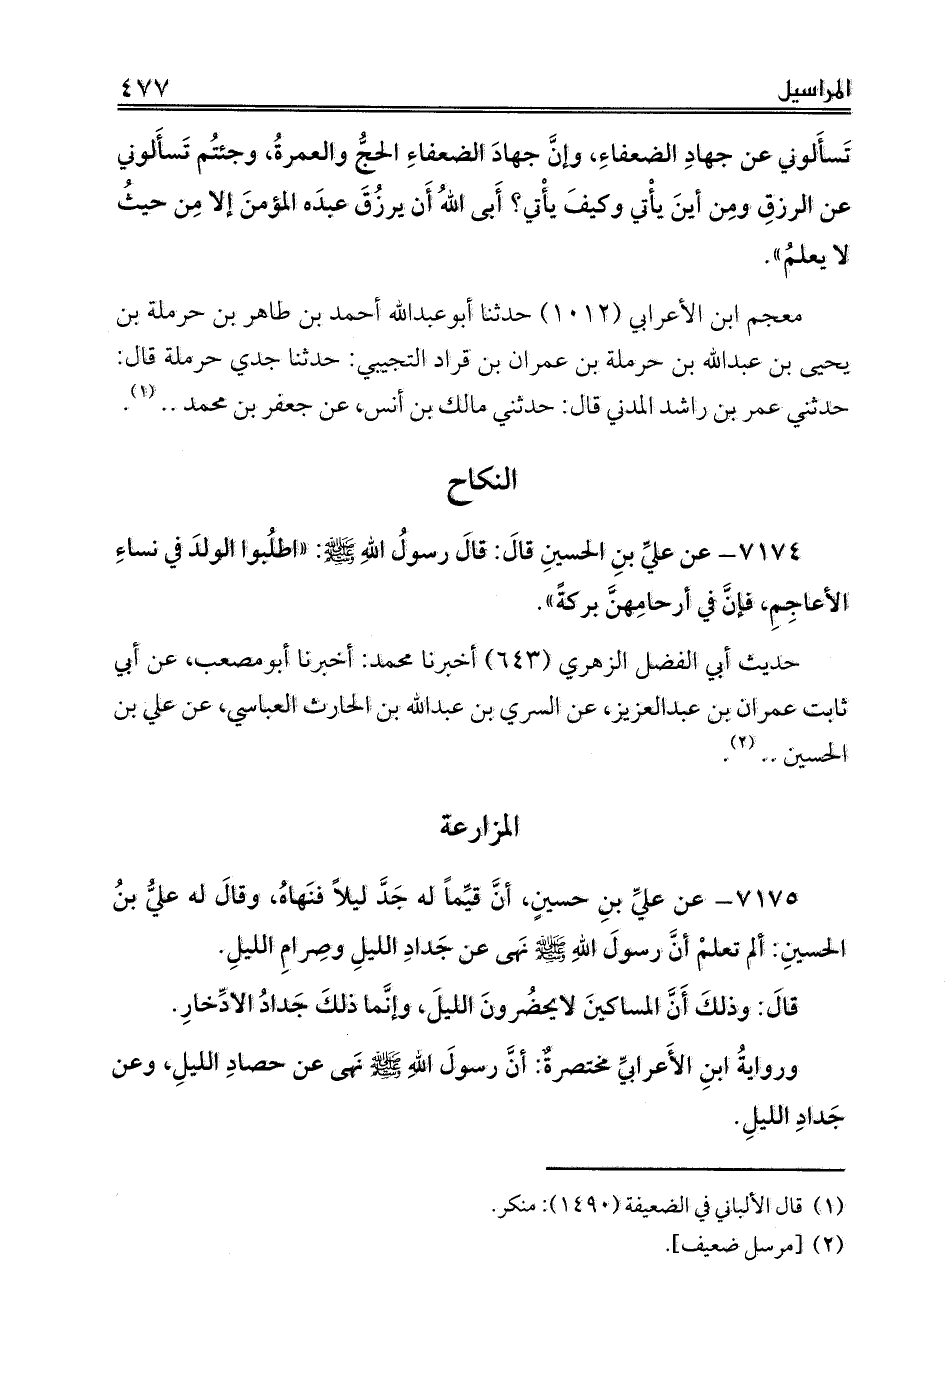 المراسيل ٤٧٧
تَسأَلوني عن جهادِ الضعفاءِ، وإنَّ جهادَ الضعفاءِ الحجُّ والعمرةُ، وجئتُم تَسأَلوني
عن الرزقِ ومِن أينَ يأْتي وكيفَ يأْتي؟ أَبى اللهُ أَن يرزُقَ عبدَه المؤمنَ إلا مِن حيثُ
لا يعلمُ».
معجم ابن الأعرابي (١٠١٢) حدثنا أبوعبدالله أحمد بن طاهر بن حرملة بن
يحيى بن عبدالله بن حرملة بن عمران بن قراد التجيبي: حدثنا جدي حرملة قال:
حدثني عمر بن راشد المدني قال: حدثني مالك بن أنس، عن جعفر بن محمد .. (١).
النكاح
٧١٧٤- عن عليِّ بنِ الحسينِ قالَ: قالَ رسولُ اللهِ ﷺ: «اطلُبوا الولدَ في نساءِ
الأعاجِمِ، فإنَّ في أرحامِهنَّ بركةً».
حديث أبي الفضل الزهري (٦٤٣) أخبرنا محمد: أخبرنا أبومصعب، عن أبي
ثابت عمران بن عبدالعزيز، عن السري بن عبدالله بن الحارث العباسي، عن علي بن
الحسين .. (٢).
المزارعة
٧١٧٥- عن عليِّ بنِ حسينٍ، أنَّ قيِّماً له جَدَّ ليلاً فنَهاهُ، وقالَ له عليُّ بنُ
الحسينِ: ألم تعلمْ أنَّ رسولَ اللهِ ﷺ نهَى عن جَدادِ الليلِ وصِرامِ الليلِ.
قالَ: وذلكَ أَنَّ المساكينَ لايحضُرونَ الليلَ، وإنَّما ذلكَ جَدادُ الادِّخارِ.
وروايةُ ابنِ الأَعرابيِّ مختصرةٌ: أنَّ رسولَ اللهِ ﷺ نهَى عن حصادِ الليلِ، وعن
جَدادِ الليلِ.
(١) قال الألباني في الضعيفة (١٤٩٠): منكر.
(٢) [مرسل ضعيف].